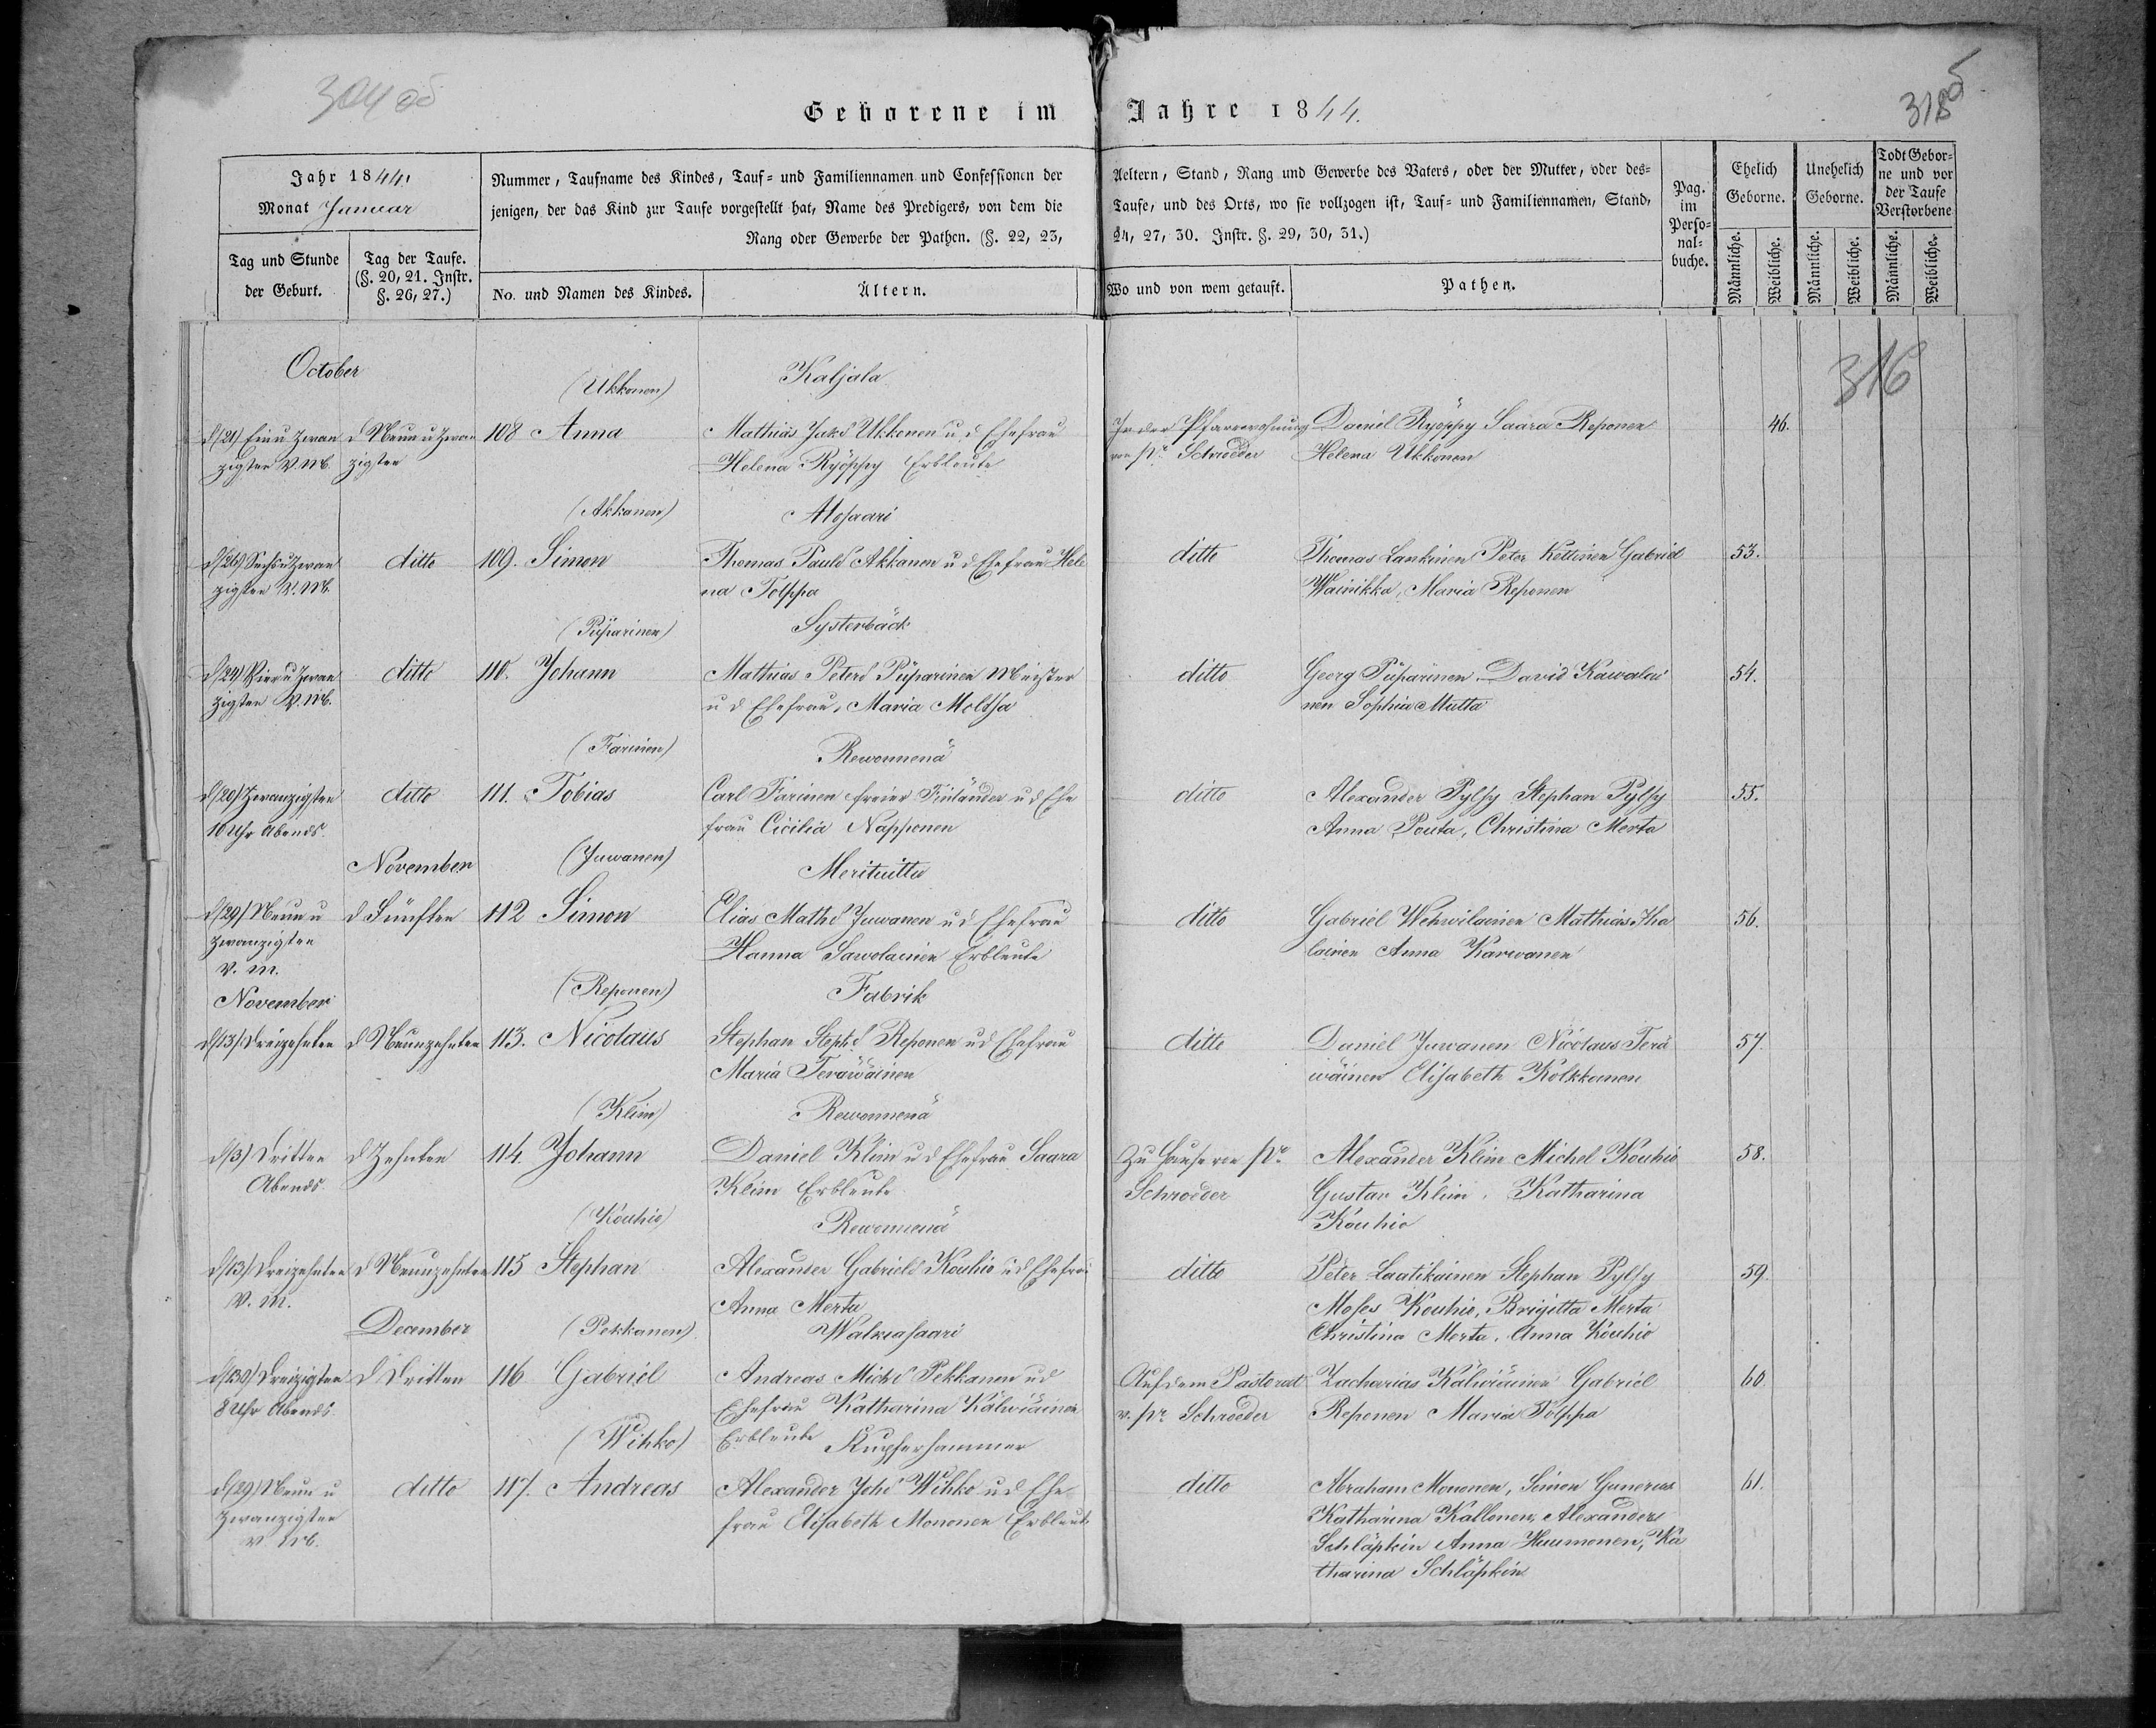 304 об
318 б
Geborene im Jahre 1844.
Jahr 1844.
Monat Januar
Nummer, Taufname des Kindes, Tauf- und Familiennamen und Confessionen der Aeltern, Stand, Rang und Gewerbe des Vaters, oder der Mutter, oder des-
jenigen, der das Kind zur Taufe vorgestellt hat, Name des Predigers, von dem die Taufe, und des Orts, wo sie vollzogen ist, Tauf- und Familiennamen, Stand,
Rang oder Gewerbe der Pathen. (§. 22, 23, 24, 27, 30. Instr. §. 29, 30, 31.)
Pag. im Perso-nal-buche.
Ehelich Geborne.
Unehelich Geborne.
Todt Gebor-ne und vor der Taufe Verstorbene
Tag und Stunde der Geburt.
Tag der Taufe. (§. 20, 21. Instr. §. 26, 27.)
No. und Namen des Kindes.
Ältern.
Wo und von wem getauft.
Pathen.
Männliche. Weibliche. Männliche. Weibliche. Männliche. Weibliche.
316
October (Ukkonen) Kaljala
d (21) Ein u zwan d Neun u zwan 108 Anna Mathias Jakd Ukkonen u d Ehefrau In der Pfarrwohnung Daniel Ryöppy Saara Reponen 46.
zigsten V. M. zigsten Helena Ryöppy Erbleute von Pr Schroeder Helena Ukkonen
(Akkanen) Alosaari
d (26) Sechs u zwan ditto 109. Simon Thomas Pauld Akkanen u d Ehefrau Hele ditto Thomas Lankinen Peter Kettinen Gabriel 53.
zigsten V. M. na Tolppa Wainikka, Maria Reponen
(Püparinen) Systerbäck
d (24) Vier u zwan ditto 110. Johann Mathias Peterd Püparinen Meister ditto Georg Püparinen David Kawalai 54.
zigsten V. M. u d Ehefrau Maria Moltsa nen Sophia Mutta
(Farinen) Rewonnenä
d (20) Zwanzigsten ditto 111. Tobias Carl Farinen freier Finländer u d Ehe ditto Alexander Pylsy Stephan Pylsy 55.
10 Uhr Abends. frau Cicilia Napponen Anna Pouta, Christina Merta
November (Juwanen) Merituitta
d (29) Neun u d Fünften 112 Simon Elias Mathd Juwanen u d Ehefrau ditto Gabriel Wehwilainen Mathias Iha 56.
zwanzigsten Hanna Sawolainen Erbleute lainen Anna Karwanen
V. M.
November (Reponen) Fabrik
d (13) Dreizehnten d Neunzehnten 113. Nicolaus Stephan Stephd Reponen u d Ehefrau ditto Daniel Juwanen Nicolaus Terä 57.
Maria Teräwäinen wäinen Elisabeth Kolkkonen
(Klim) Rewonnenä
d (3) Dritten d Zehnten 114. Johann Daniel Klim u d Ehefrau Saara Zu Hause von Pr Alexander Klim Michel Kouhio 58.
Abends. Klim Erbleute Schroeder Gustav Klim, Katharina
(Kouhio) Rewonnenä Kouhio
d (13) Dreizehnten d Neunzehnten 115 Stephan Alexander Gabrield Kouhio u d Ehefrau ditto Peter Laatikainen Stephan Pylsy 59.
V. M. Anna Merta Moses Kouhio, Brigitta Merta
December (Pekkanen) Walkiasaari Christina Merta, Anna Kouhio
d (30) Dreizigsten d Dritten 116 Gabriel Andreas Michd Pekkanen u d Auf dem Pastorat Zacharias Kälwiäinen Gabriel 60.
8 Uhr Abends. Ehefrau Katharina Kälwiäinen v. Pr Schroeder Reponen Maria Tolppa
(Wihko) Erbleute Kupferhammer
d (29) Neun u ditto 117. Andreas Alexander Johd Wihko u d Ehe ditto Abraham Mononen, Simon Gunerus 61.
zwanzigsten frau Elisabeth Mononen Erbleute Katharina Kallonen, Alexander
V. M. Schläpkin Anna Huumonen, Ka
tharina Schläpkin